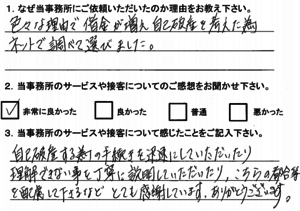 1. なぜ当事務所にご依頼いただいたのか理由をお教え下さい。
色々な理由で借金が増え自己破産を考えた為
ネットで調べて選びました。
2. 当事務所のサービスや接客についてのご感想をお聞かせ下さい。
✓ 非常に良かった 良かった 普通 悪かった
3. 当事務所のサービスや接客について感じたことをご記入下さい。
自己破産する為の手続きを迅速にしていただいたり
理解できない事を丁寧に説明していただいたり、こちらの都合等
を配慮して下さるなど とても感謝しています。ありがとうございます。